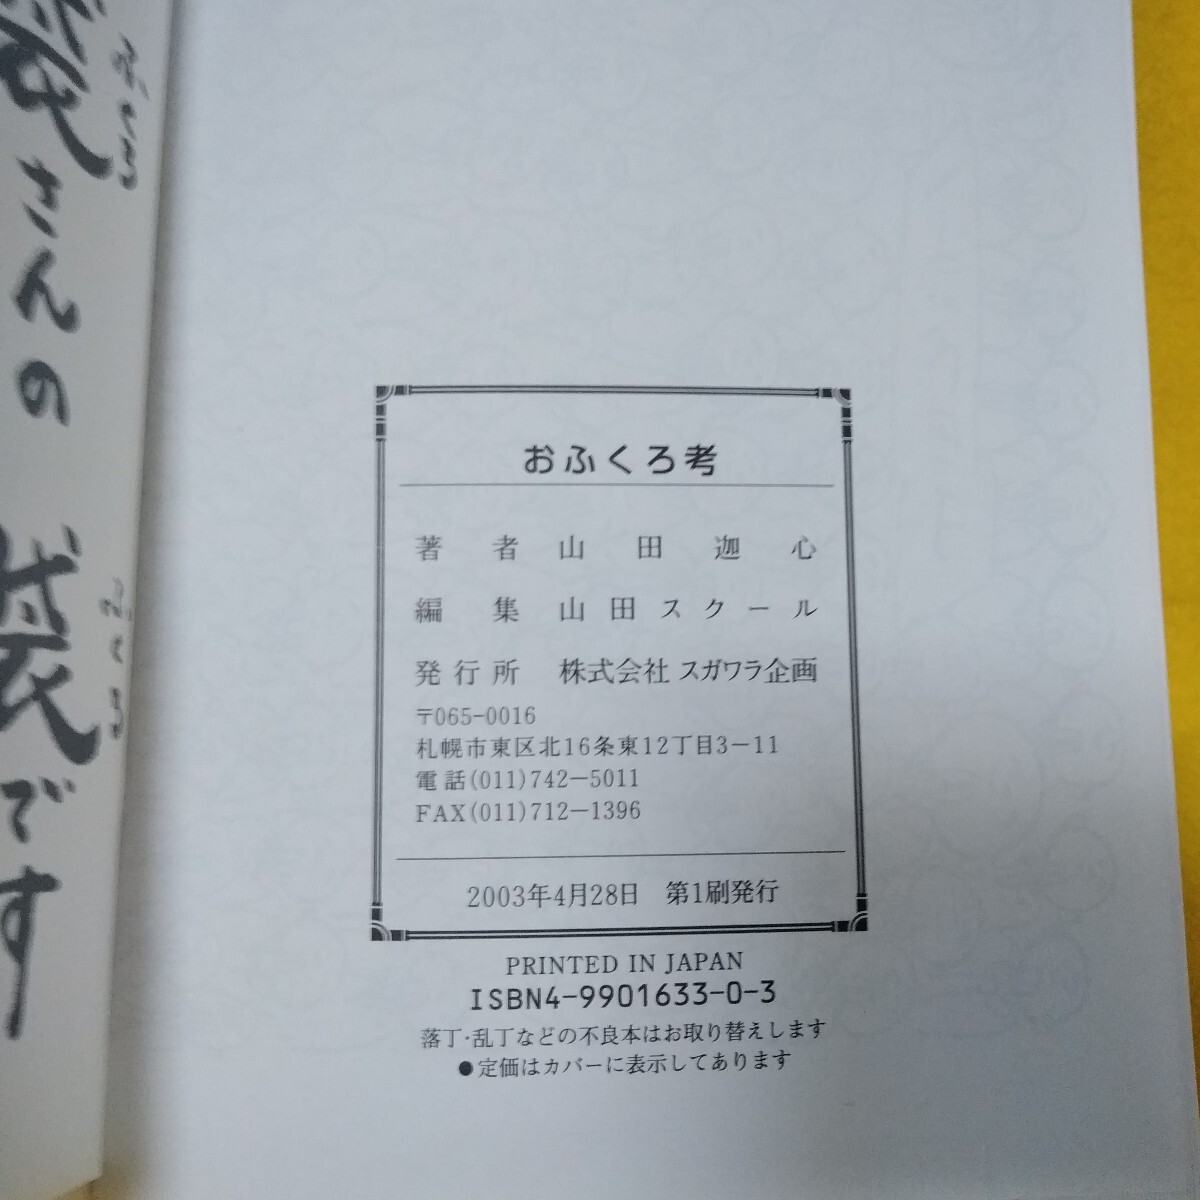 袋さんの
ふくろ
袋です
ふくろ
おふくろ考
著者 山田迦心
編集 山田スクール
発行所 株式会社 スガワラ企画
〒065-0016
札幌市東区北16条東12丁目3-11
電話(011)742-5011
FAX(011)712-1396
2003年4月28日 第1刷発行
PRINTED IN JAPAN
ISBN4-9901633-0-3
落丁・乱丁などの不良本はお取り替えします
●定価はカバーに表示してあります